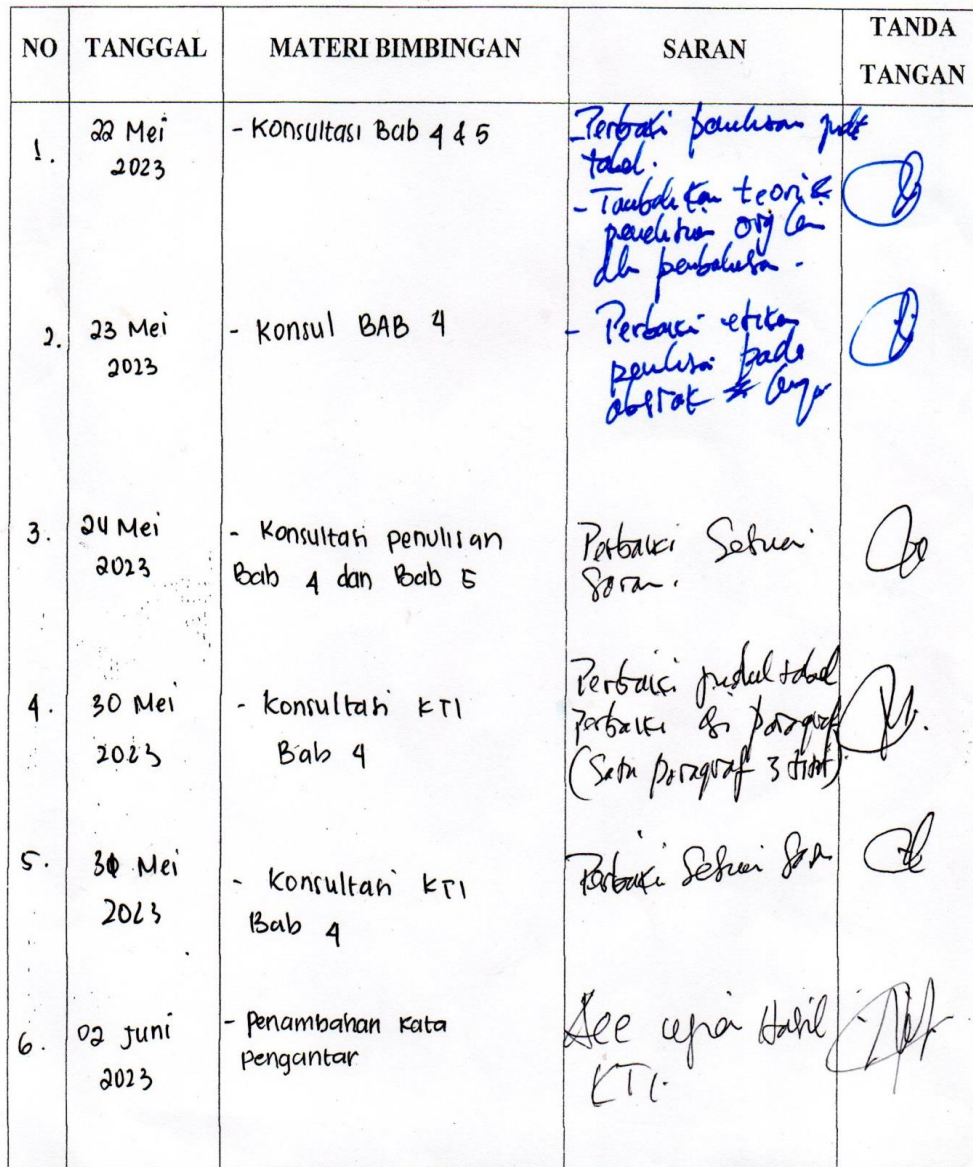 NO TANGGAL MATERI BIMBINGAN SARAN TANDA TANGAN
1. 22 Mei 2023
- Konsultasi Bab 4 & 5
- Perbaiki penulisan judul
tabel.
- Tambahkan teori &
penelitian org lain
dlm pembahasan.
2. 23 Mei 2023
- Konsul BAB 4
- Perbaiki
penulisan pada
abstrak
3. 24 Mei 2023
- Konsultasi penulisan
Bab 4 dan Bab 5
Perbaiki Sesuai
Saran.
4. 30 Mei 2023
- Konsultasi KTI
Bab 4
Perbaiki judul tabel
Perbaiki paragraf
(Satu paragraf 3
5. Mei 2023
- Konsultasi KTI
Bab 4
Perbaiki Sesuai Saran
6. 02 Juni 2023
- Penambahan Kata
pengantar
Acc ujian Hasil
KTI.